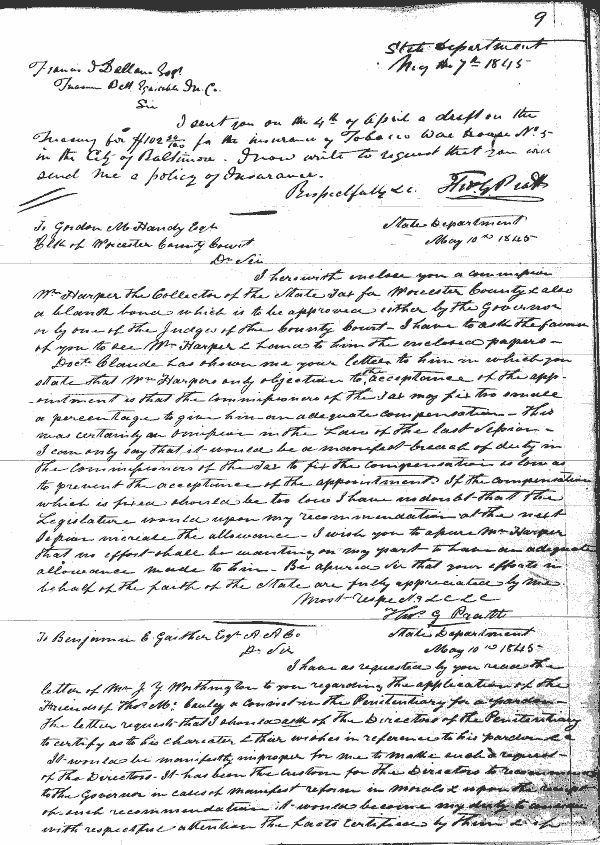 9
State Department
May the 7th 1845
Francis J Dallam Esqr
Treasurer Balt Equitable In. Co.
Sir
I sent you on the 4th of April a draft on the
Treasury for $102 50/100 for the insurance of Tobacco Ware house No. 5
in the City of Baltimore. I now write to request that you will
send me a policy of Insurance.
Respectfully &c. Tho. G Pratt
To Gordon M Handy Esqr
Clk of Worcester County Court
State Department
May 10th 1845
Dr Sir
I herewith enclose you a commission
Wm Harper the Collector of the State Tax for Worcester County & also
a blank bond which is to be approved either by the Governor
or by one of the Judge of the County Court - I have to ask the favour
of you to see Wm Harper & hand to him the enclosed papers -
Doct. Claude has shown me your letter to him in which you
state that Wm Harpers only objection to the acceptance of the app-
ointment is that the commissioners of the Tax may fix too small
a percentage to give him an adequate compensation - This
was certainly an omission in the Law of the last session -
I can only say that it would be a manifest breach of duty in
the Commissioners of the Tax to fix the compensation so low as
to prevent the acceptance of the appointment. If the compensation
which is fixed should be too low I have no doubt that the
Legislature would upon my recommendation at the next
Session increase the allowance - I wish you to assure Mr Harper
that no effort shall be wanting on my part to have an adequate
allowance made to him - Be assured Sir that your efforts in
behalf of the faith of the State are fully appreciated by me.
Most respec &c &c &c
Thos G Pratt
To Benjamin E Gaither Esqr A A Co
State Department
May 10th 1845
Dr Sir
I have as requested by you read the
letter of Mr J Y Worthington to you regarding the application of the
Friends of Thos Mc. Cauley a convict in the Penitentiary for a pardon -
The letter requests that I should ask of the Directors of the Penitentiary
to certify as to his character & their wishes in reference to his pardon &c
It would be manifestly improper for me to make such a request -
of the Directors - It has been the custom for the Directors to recommend
to the Governor in cases of manifest reform in morals & upon the receipt
of such recommendation it would become my duty to
with respectful attention the facts certified by them & if